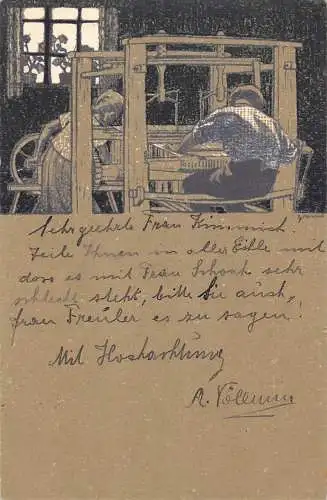 Sehrgeehrte Frau Kimmich!
Teile Ihnen in aller Eihle mit
dass es mit Frau Schonk sehr
schlecht steht, bitte Sie auch,
frau Freuler es zu sagen!
Mit Hochachtung
A. Völlmin